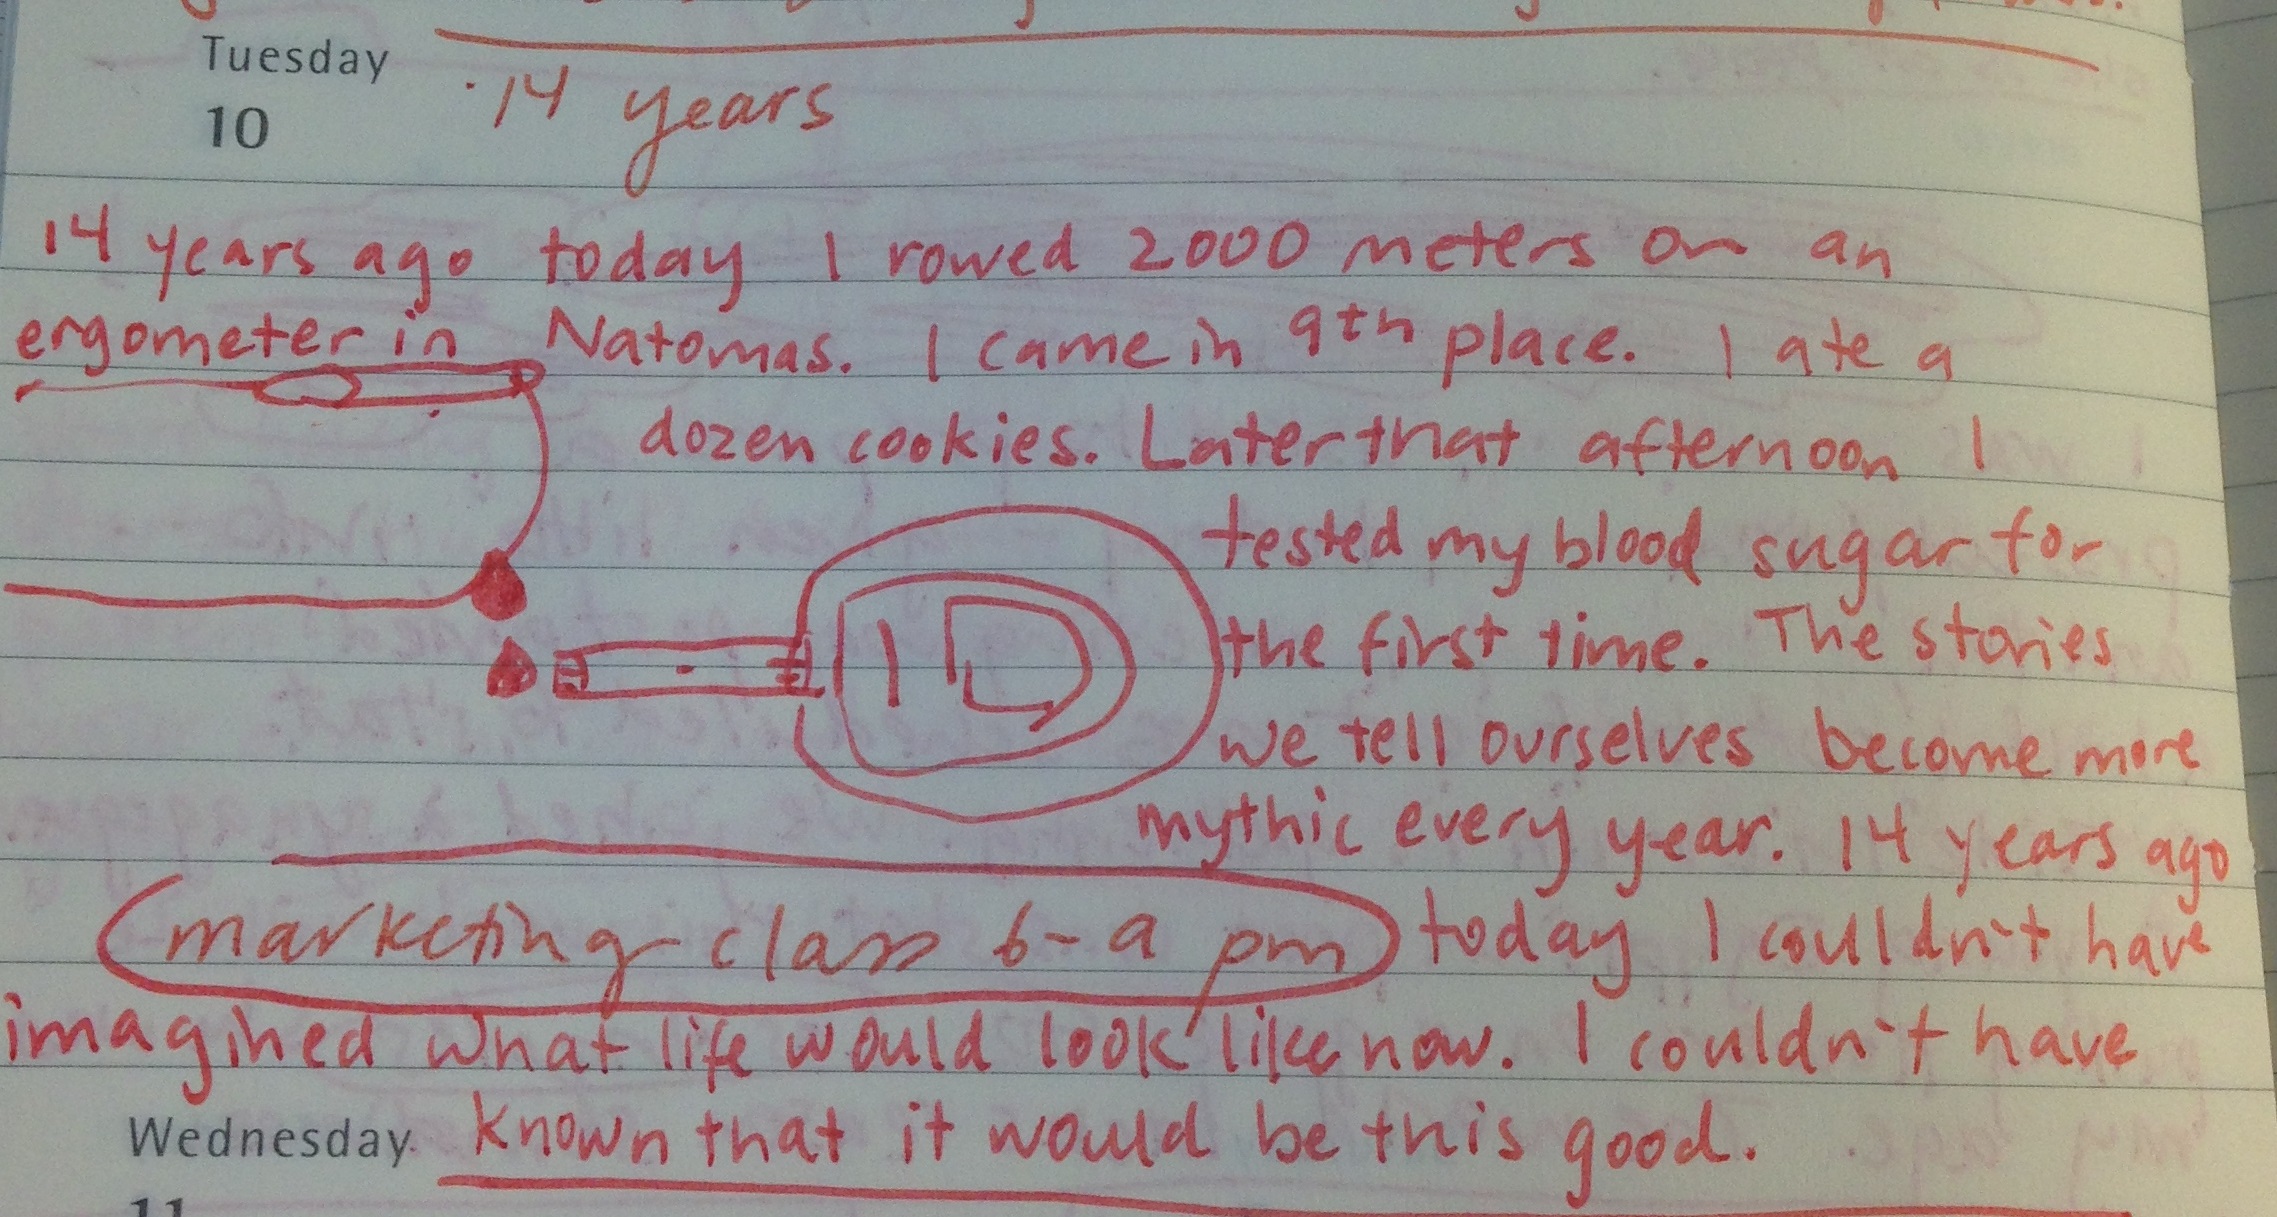 Tuesday
10
·14 years
14 years ago today I rowed 2000 meters on an
ergometer in Natomas. I came in 9th place. I ate a
dozen cookies. Later that afternoon I
tested my blood sugar for
the first time. The stories
1D
we tell ourselves become more
mythic every year. 14 years ago
marketing class 6-9 pm
today I couldn't have
imagined what life would look like now. I couldn't have
known that it would be this good.
Wednesday
11